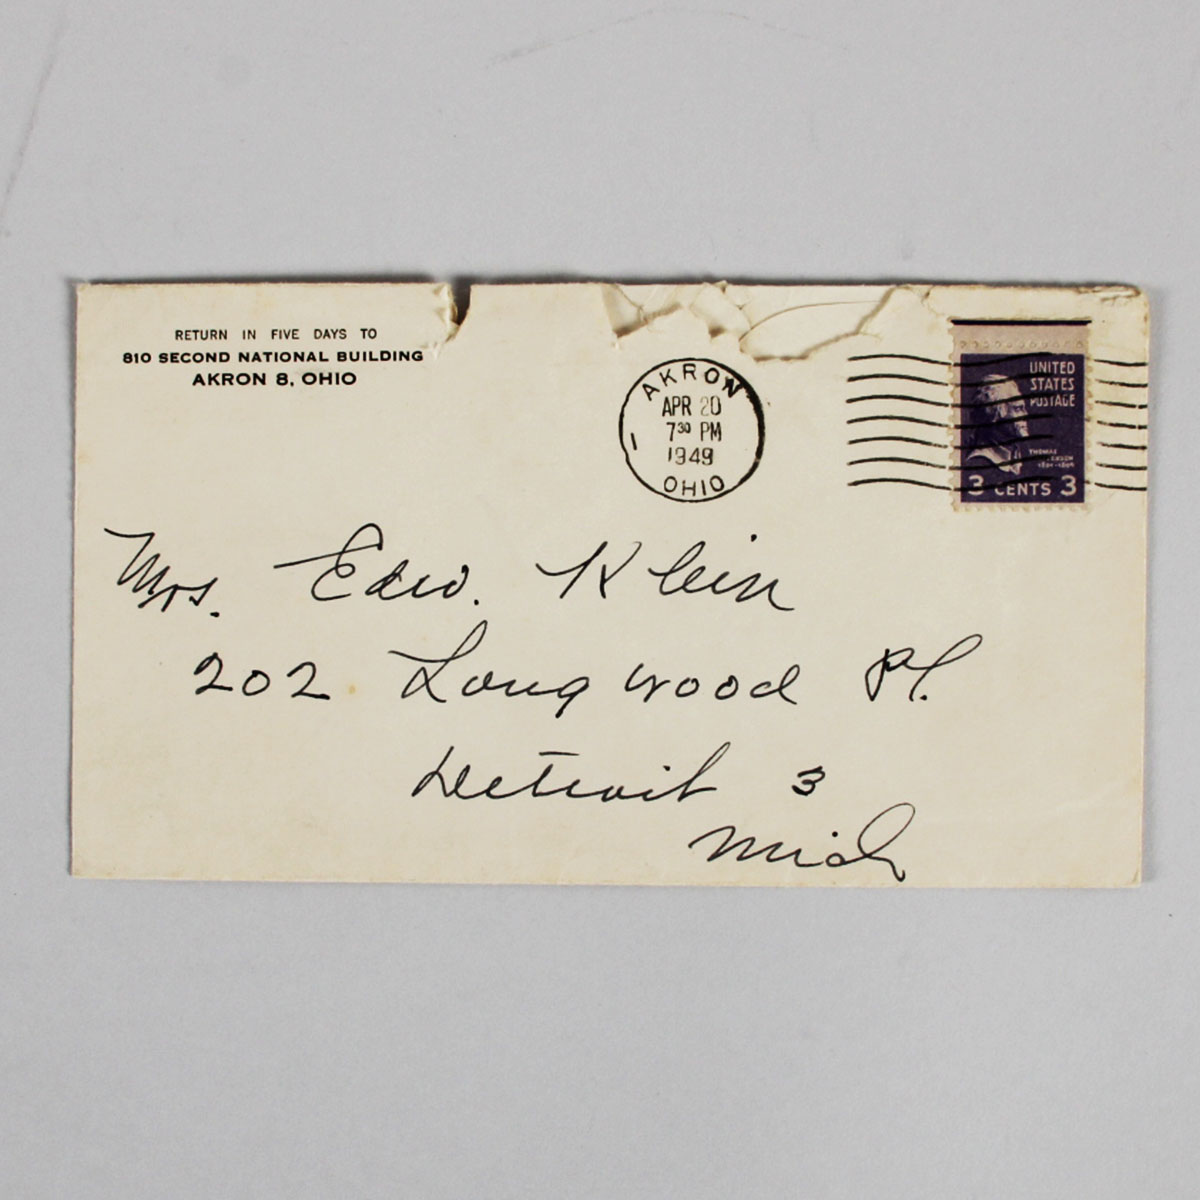 RETURN IN FIVE DAYS TO
810 SECOND NATIONAL BUILDING
AKRON 8, OHIO
AKRON
APR 20
7 30 PM
1949
1
OHIO
UNITED
STATES
POSTAGE
THOMAS
3 CENTS 3
Mrs. Edw. Klein
202 Longwood Pl.
Detroit 3
Mich